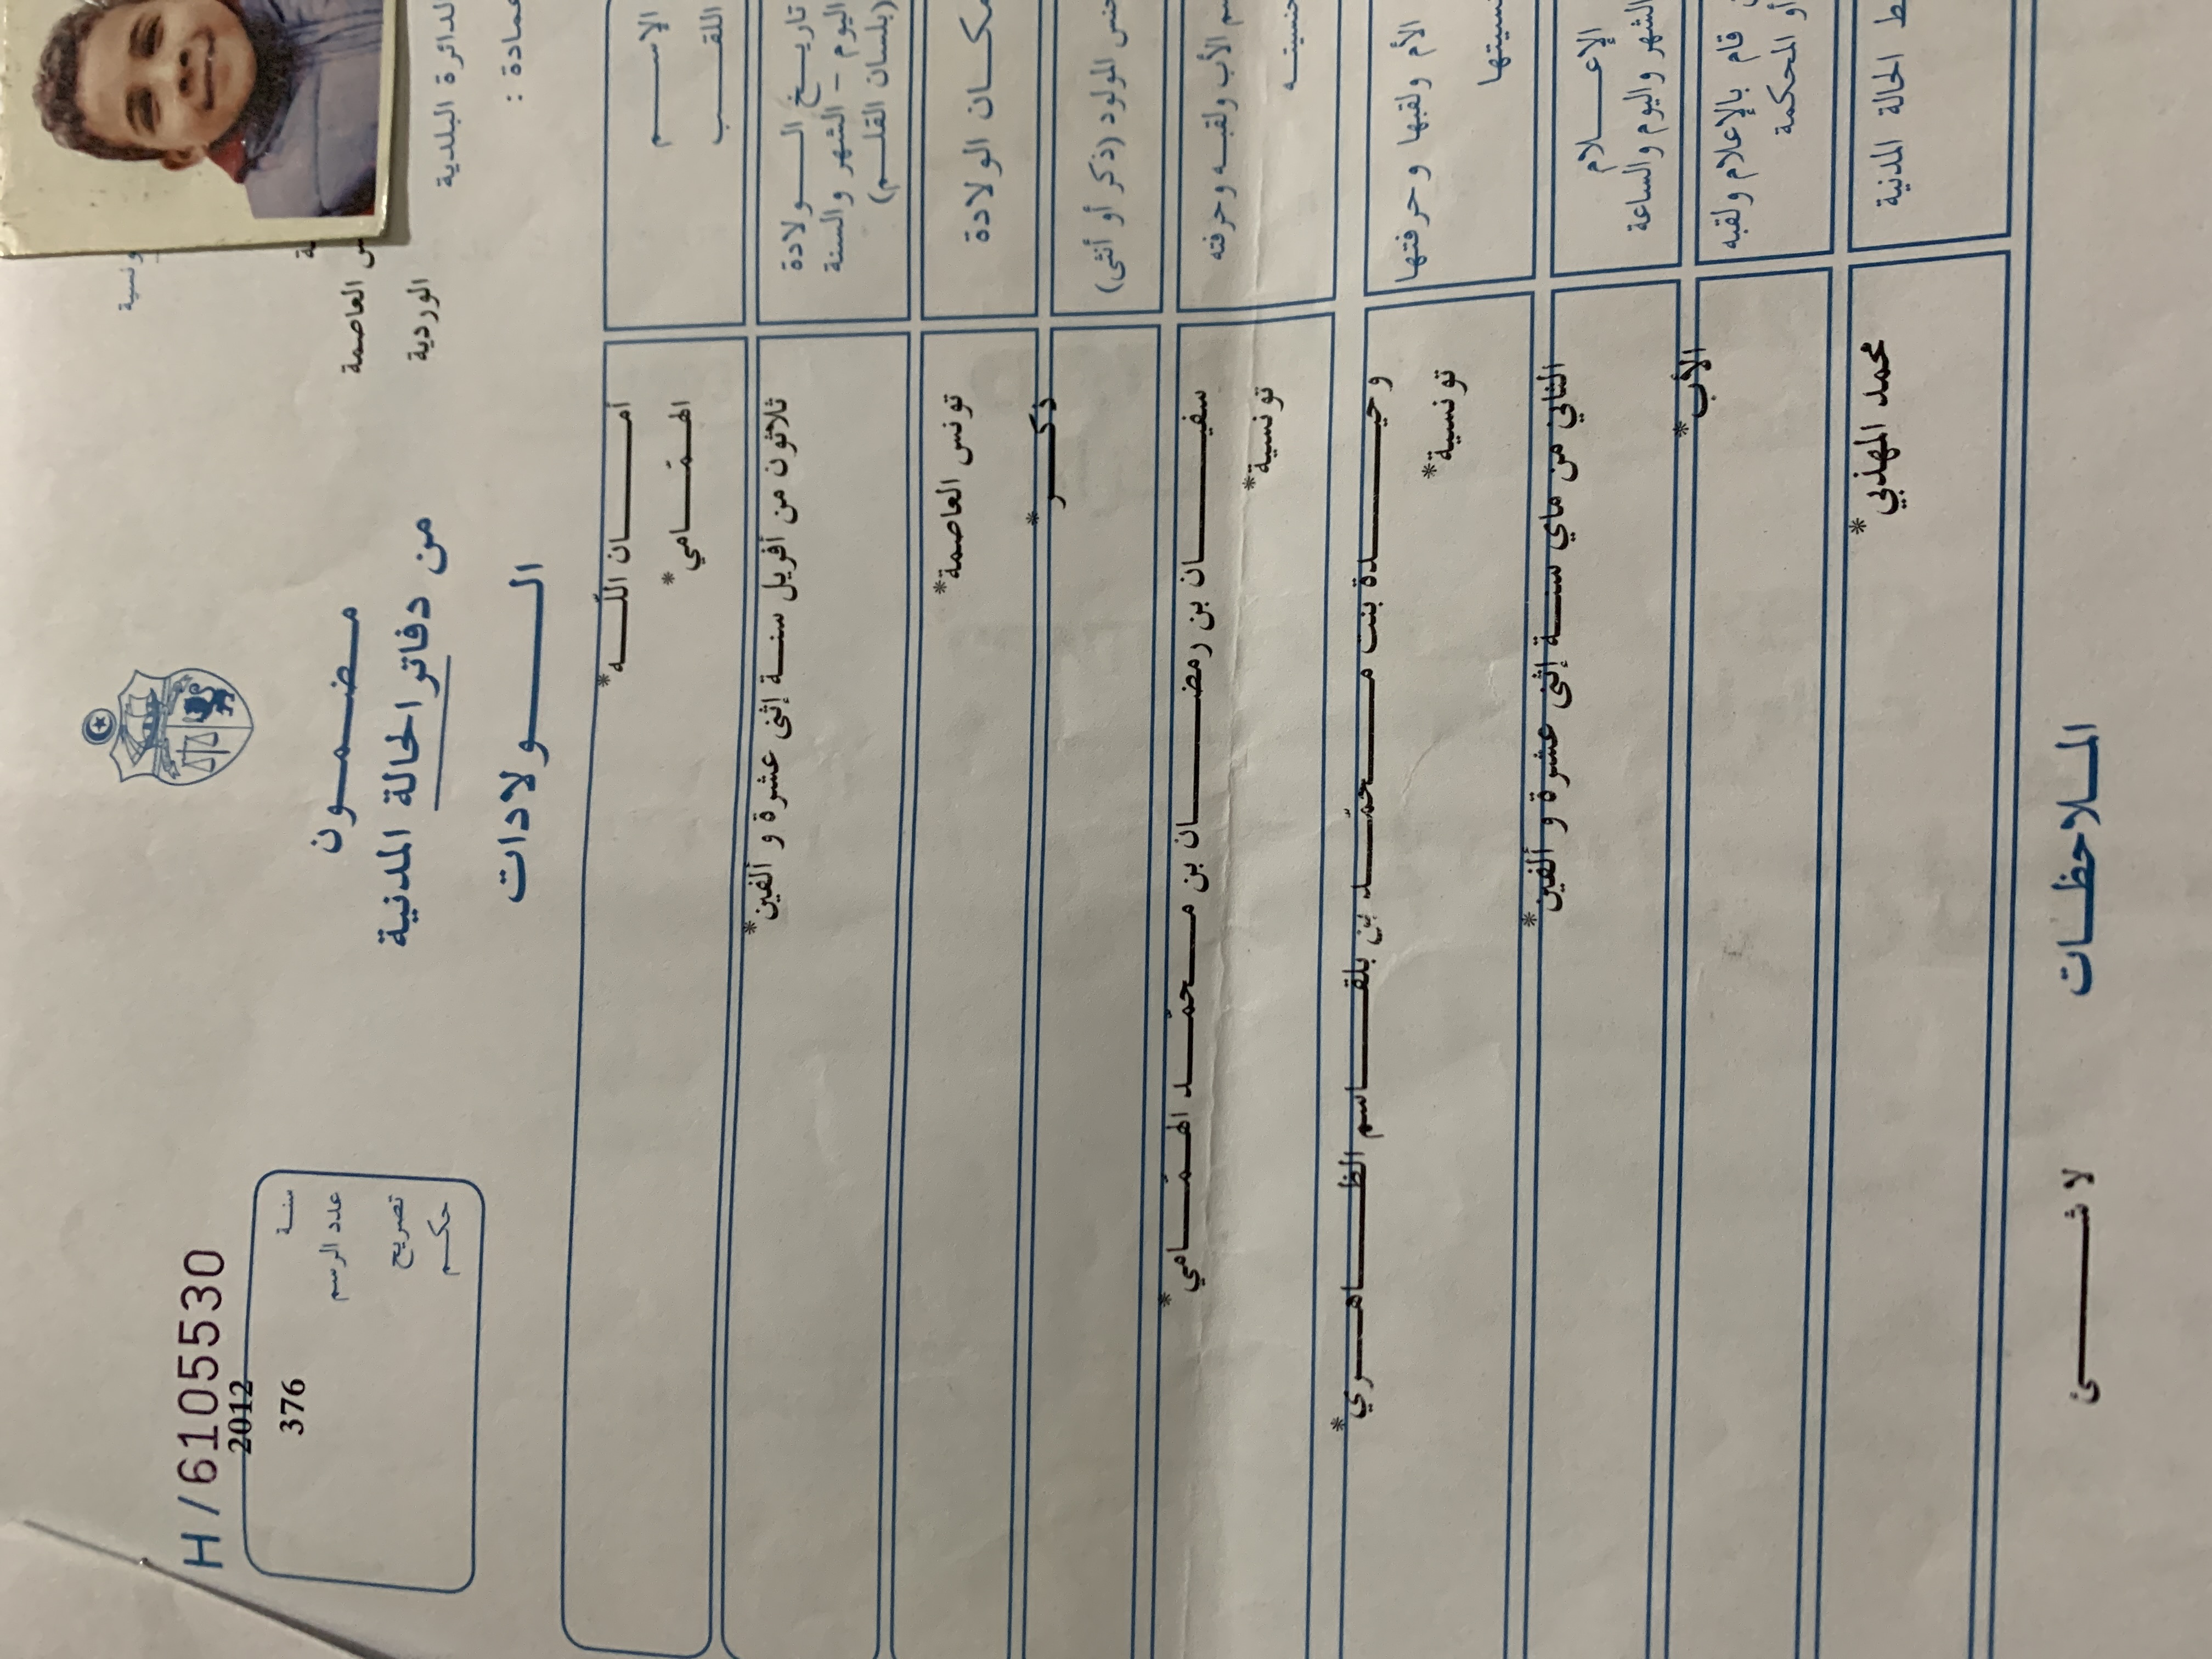 H/6105530
سنة 2012
عدد الرسم 376
تصريح
حكم
العاصمة
لدائرة البلدية الوردية
مضمون
من دفاتر الحالة المدنية
الولادات
الإسم أمان اللّه*
اللقب الهمّامي*
تاريخ الولادة
اليوم - الشهر والسنة
(بلسان القلم)
ثلاثون من أفريل سنة إثنى عشرة و ألفين*
مكان الولادة تونس العاصمة*
جنس المولود (ذكر أو أنثى) ذكر*
الأب ولقبه وحرفته سفيان بن رمضان بن محمّد الهمّامي*
تونسية*
الأم ولقبها وحرفتها وحيدة بنت محمّد بن بلقاسم الظاهري*
تونسية*
الإعلام
الشهر واليوم والساعة
الثاني من ماي سنة إثنى عشرة و ألفين*
قام بالإعلام ولقبه
أو المحكمة
الأب*
الحالة المدنية محمد المهذبي*
الملاحظات
لا شئ